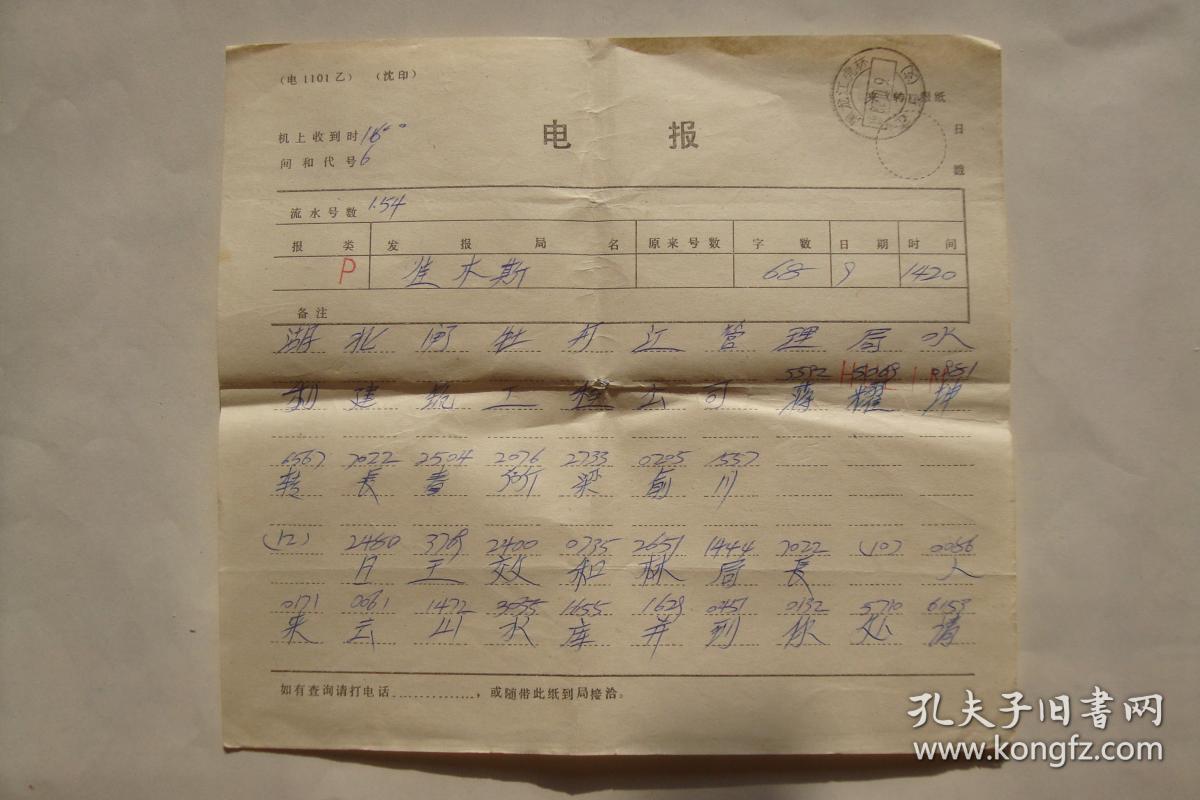 (电1101乙) (沈印)
来(转)报纸
电 报
机上收到时 16
间和代号 6
日
戳
流水号数 154
报类 发报局名 原来号数 字数 日期 时间
P 佳木斯 68 9 1420
备注
湖北 牡丹江管理局水
5592 5069 0981
利建筑工程公司 蒋耀坤
6567 7022 2504 2076 2733 0205 1557
转 長春 梁俞川
(12) 2480 3769 2400 0735 2651 1444 7022 (10) 0086
日王效和林局長 人
0171 0061 1472 3055 1655 1629 0451 0132 5710 6153
来云山水库并到你处请
如有查询请打电话..............,或随带此纸到局接洽。
孔夫子旧书网
www.kongfz.com